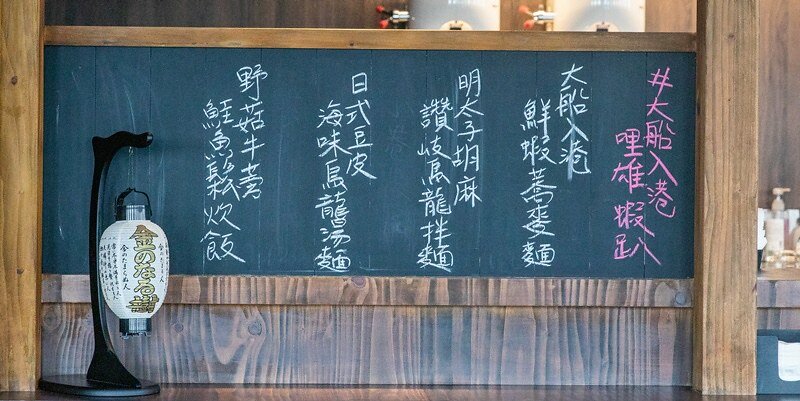 #大船入港
哩雄蝦趴
大船入港
鮮蝦蕎麥麵
明太子胡麻
讚岐烏龍拌麵
日式豆皮
海味烏龍湯麵
野菇牛蒡
鮭魚鬆炊飯
金のなる樹